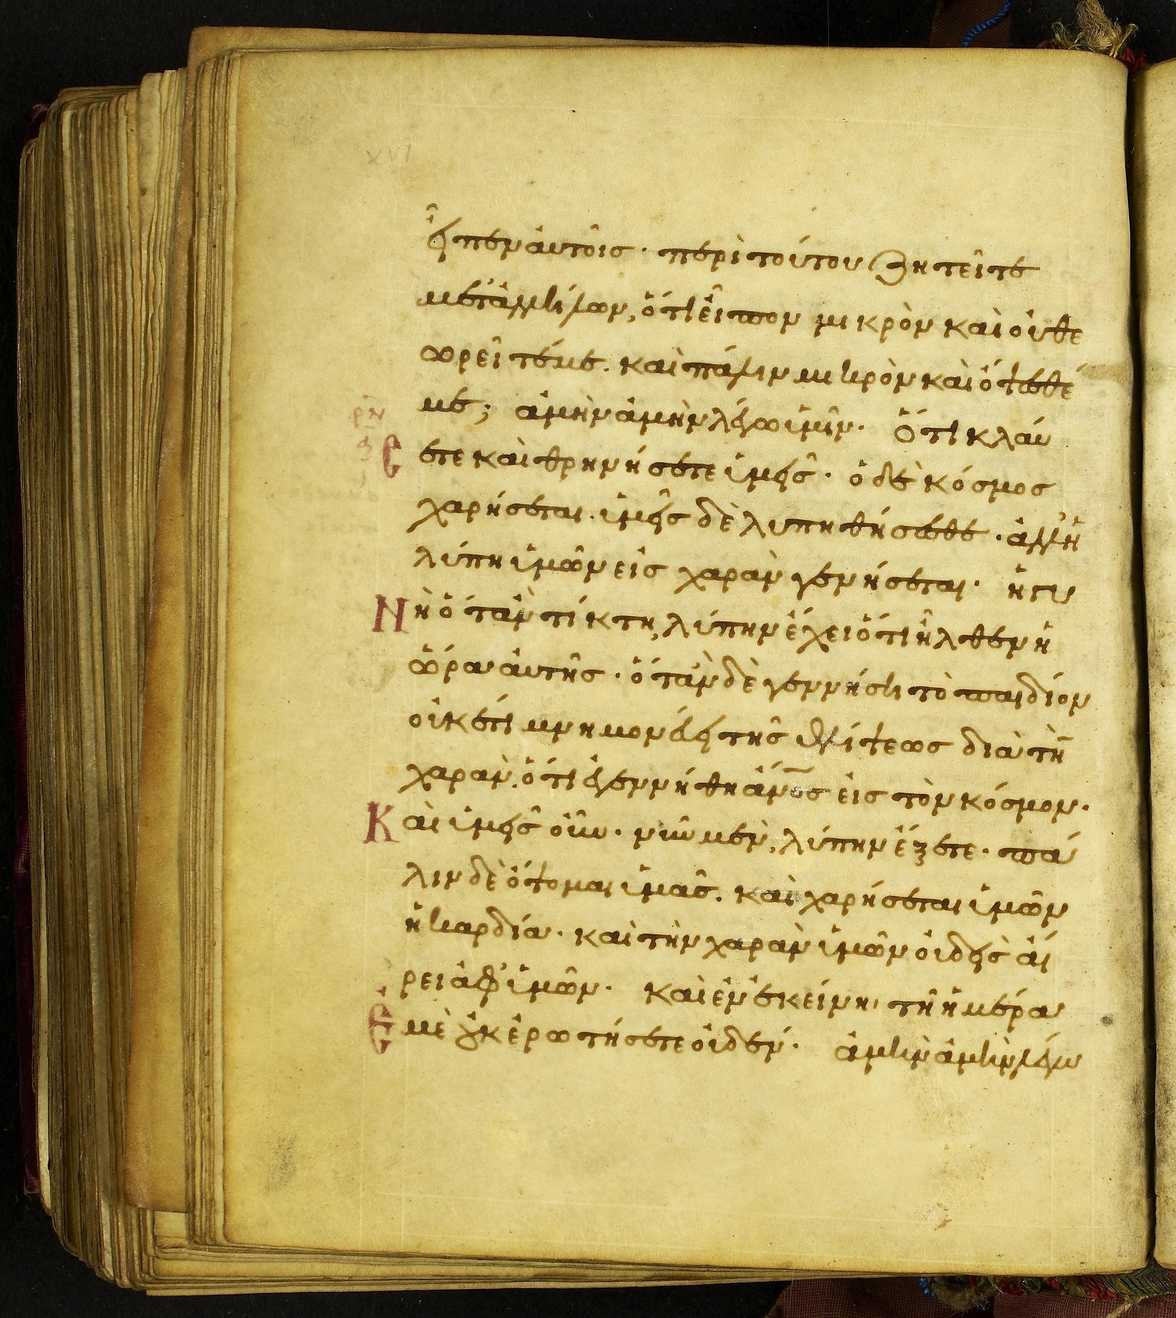 xvi
εἶπεν αὐτοῖς· περὶ τούτου ζητεῖτε
μετἀλλήλων, ὅτι εἶπον μικρὸν καὶ οὐ θε
ωρεῖτέ με. καὶ πάλιν μικρὸν καὶ ὄψεσθέ
με; ἀμὴν ἀμὴν λέγω ὑμῖν· Ὅτι κλαύ
σετε καὶ θρηνήσετε ὑμεῖς· ὁ δὲ κόσμος
χαρήσεται. ὑμεῖς δὲ λυπηθήσεσθε· ἀλλἡ
λύπη ὑμῶν εἰς χαρὰν γενήσεται· ἡ γυ
Νὴ ὅταν τίκτη, λύπην ἔχει ὅτι ἦλθεν ἡ
ὥρα αὐτῆς· ὅταν δὲ γεννήση τὸ παιδίον
οὐκέτι μνημονεύει τῆς θλίψεως διὰ τὴν
χαρὰν, ὅτι ἐγεννήθη ἄνος εἰς τὸν κόσμον·
Καὶ ὑμεῖς οὖν· νῦν μὲν, λύπην ἕξετε· πά
λιν δὲ ὄψομαι ὑμᾶς. καὶ χαρήσεται ὑμῶν
ἡ καρδία· καὶ τὴν χαρὰν ὑμῶν οὐδεὶς αἴ
ρει ἀφ' ὑμῶν· καὶ ἐν ἐκείνη τῆ ἡμέρα
Ἐμὲ οὐκ ἐρωτήσετε οὐδέν· ἀμὴν ἀμὴν λέγω